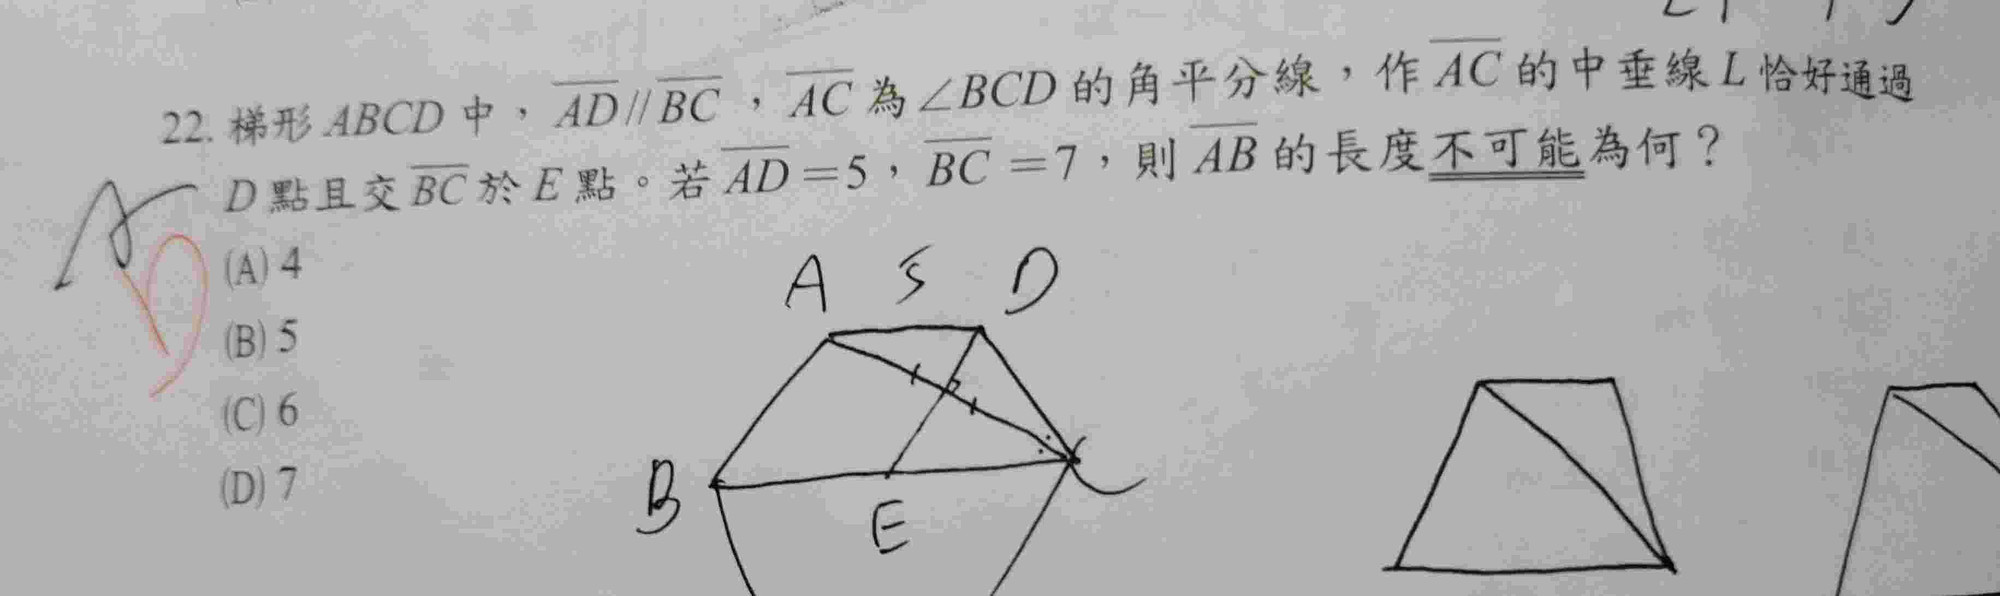 22. 梯形 ABCD 中，AD // BC，AC 為∠BCD 的角平分線，作 AC 的中垂線 L 恰好通過
D 點且交 BC 於 E 點。若 AD =5，BC =7，則 AB 的長度不可能為何？
(A) 4
(B) 5
(C) 6
(D) 7
A 5 D
B E C